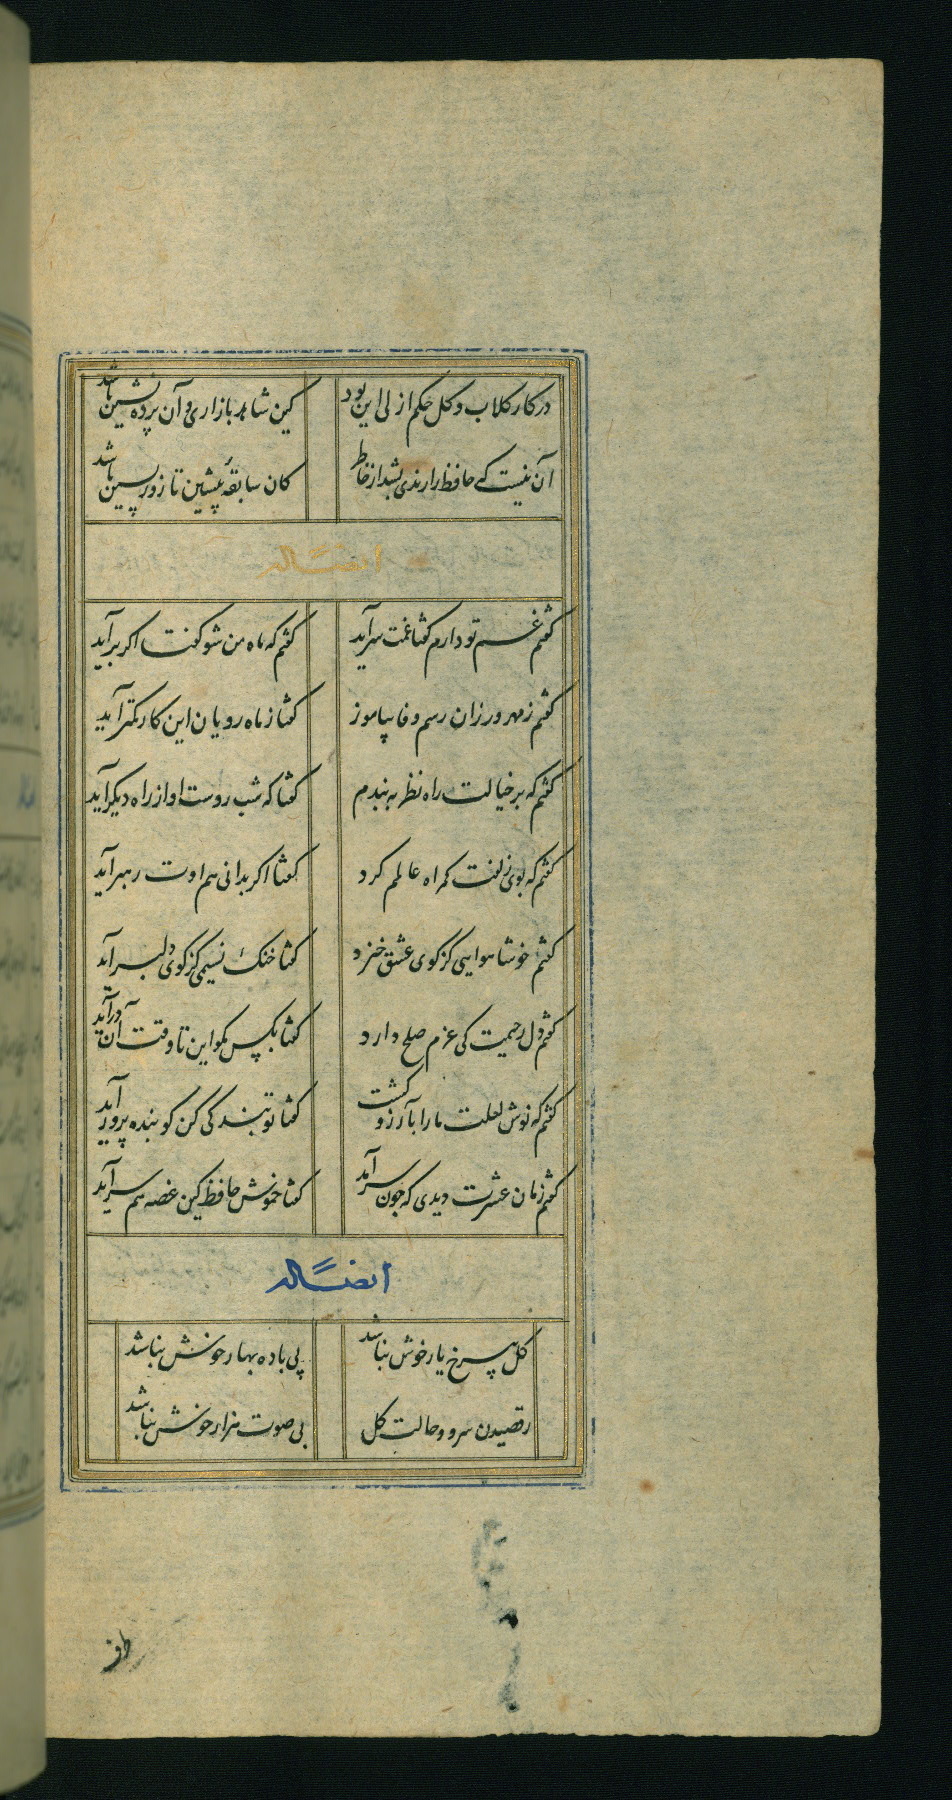 در کار کلاب و کل حکم ازلی این بود کین شاهد بازاری و آن پرده نشین باشد
آن نیست که حافظ را رندی بشد از خاطر کان سابقهٔ پیشین تا روز پسین باشد
ایضاً له
کفتم غم تو دارم کفتا غمت سر آید کفتم که ماه من شو کفتا اکر بر آید
کفتم ز مهرورزان رسم وفا بیاموز کفتا ز ماه رویان این کار کمتر آید
کفتم که بر خیالت راه نظر ببندم کفتا که شب روست او از راه دیکر آید
کفتم که بوی زلفت کمراه عالمم کرد کفتا اکر بدانی هم اوت رهبر آید
کفتم خوشا هوایی کز کوی عشق خیزد کفتا خنک نسیمی کز کوی دلبر آید
کفتم دل رحیمت کی عزم صلح دارد کفتا بکس مکو این تا وقت آن در آید
کفتم که نوش لعلت ما را بآرزو کشت کفتا تو بندکی کن کو بنده پرور آید
کفتم زمان عشرت دیدی که چون سر آمد کفتا خموش حافظ کین غصه هم سر آید
ایضاً له
کل بی رخ یار خوش نباشد بی باده بهار خوش نباشد
رقصیدن سرو و حالت کل بی صوت هزار خوش نباشد
طرف